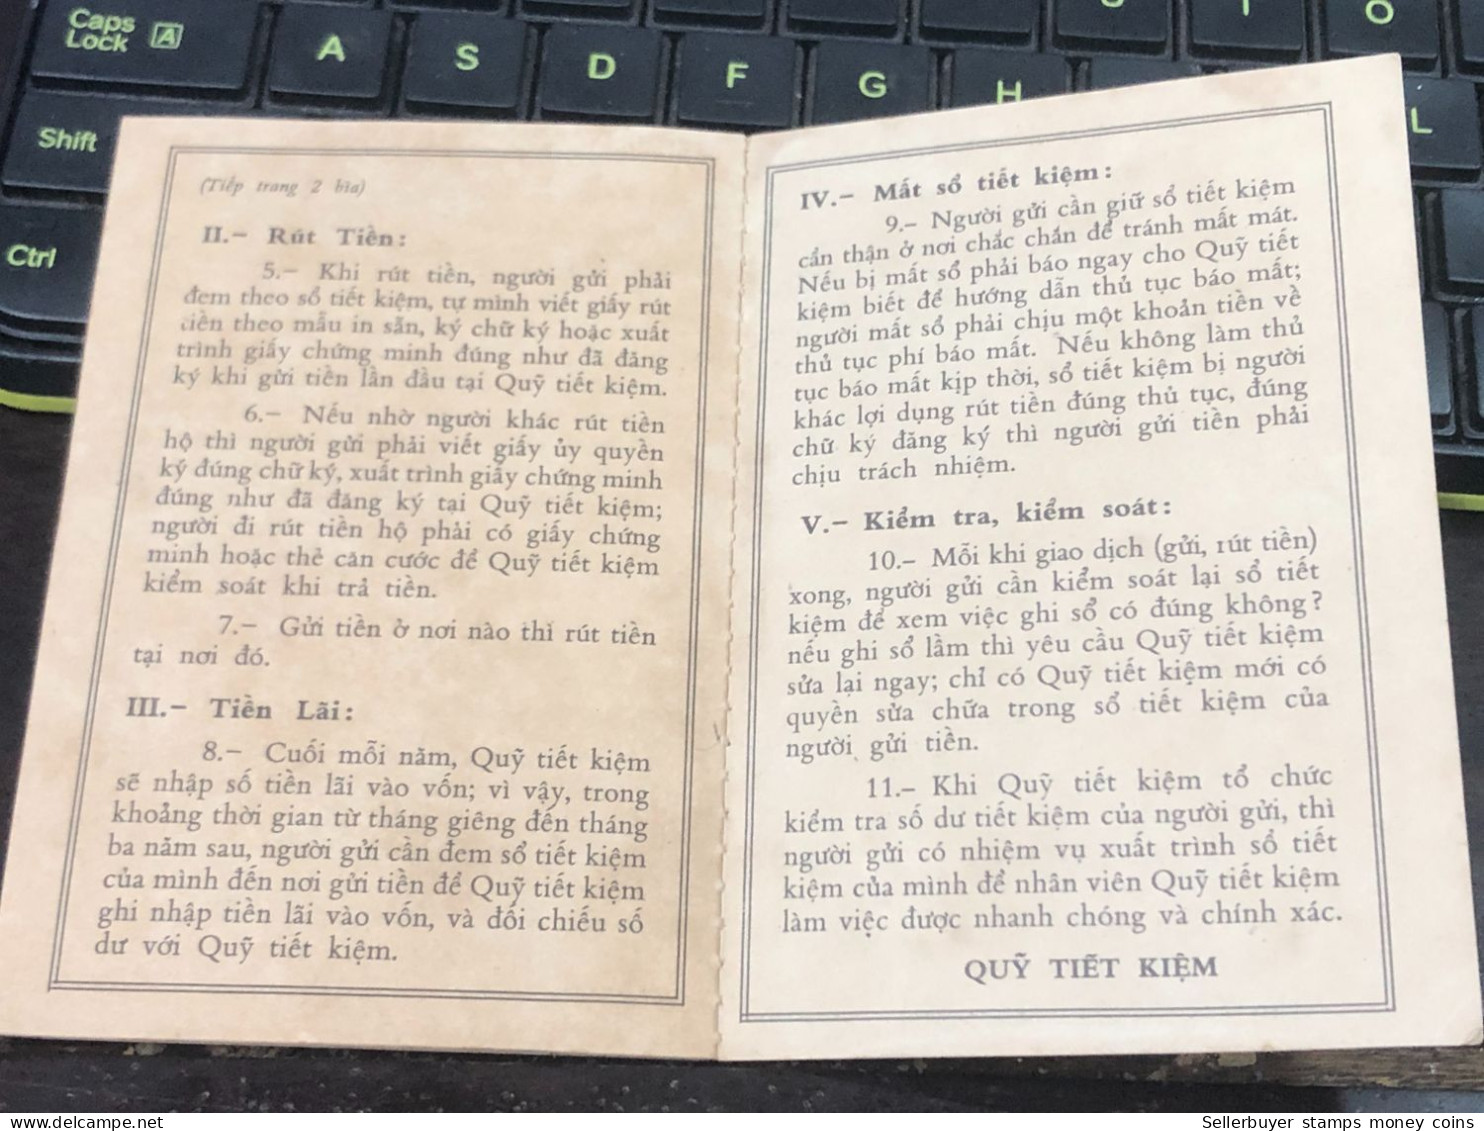 Caps
Lock A
A S D F G H L O
Shift
Ctrl
(Tiếp trang 2 bìa)
II.– Rút Tiền:
5.– Khi rút tiền, người gửi phải
đem theo sổ tiết kiệm, tự mình viết giấy rút
tiền theo mẫu in sẵn, ký chữ ký hoặc xuất
trình giấy chứng minh đúng như đã đăng
ký khi gửi tiền lần đầu tại Quỹ tiết kiệm.
6.– Nếu nhờ người khác rút tiền
hộ thì người gửi phải viết giấy ủy quyền
ký đúng chữ ký, xuất trình giấy chứng minh
đúng như đã đăng ký tại Quỹ tiết kiệm;
người đi rút tiền hộ phải có giấy chứng
minh hoặc thẻ căn cước để Quỹ tiết kiệm
kiểm soát khi trả tiền.
7.– Gửi tiền ở nơi nào thì rút tiền
tại nơi đó.
III.– Tiền Lãi:
8.– Cuối mỗi năm, Quỹ tiết kiệm
sẽ nhập số tiền lãi vào vốn; vì vậy, trong
khoảng thời gian từ tháng giêng đến tháng
ba năm sau, người gửi cần đem sổ tiết kiệm
của mình đến nơi gửi tiền để Quỹ tiết kiệm
ghi nhập tiền lãi vào vốn, và đối chiếu số
dư với Quỹ tiết kiệm.
IV.– Mất sổ tiết kiệm:
9.– Người gửi cần giữ sổ tiết kiệm
cẩn thận ở nơi chắc chắn để tránh mất mát.
Nếu bị mất sổ phải báo ngay cho Quỹ tiết
kiệm biết để hướng dẫn thủ tục báo mất;
người mất sổ phải chịu một khoản tiền về
thủ tục phí báo mất. Nếu không làm thủ
tục báo mất kịp thời, sổ tiết kiệm bị người
khác lợi dụng rút tiền đúng thủ tục, đúng
chữ ký đăng ký thì người gửi tiền phải
chịu trách nhiệm.
V.– Kiểm tra, kiểm soát:
10.– Mỗi khi giao dịch (gửi, rút tiền)
xong, người gửi cần kiểm soát lại sổ tiết
kiệm để xem việc ghi sổ có đúng không?
nếu ghi sổ lầm thì yêu cầu Quỹ tiết kiệm
sửa lại ngay; chỉ có Quỹ tiết kiệm mới có
quyền sửa chữa trong sổ tiết kiệm của
người gửi tiền.
11.– Khi Quỹ tiết kiệm tổ chức
kiểm tra số dư tiết kiệm của người gửi, thì
người gửi có nhiệm vụ xuất trình sổ tiết
kiệm của mình để nhân viên Quỹ tiết kiệm
làm việc được nhanh chóng và chính xác.
QUỸ TIẾT KIỆM
www.delcampe.net
Sellerbuyer stamps money coins